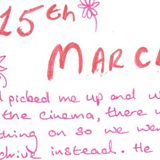 15th
MARC
picked me up and w
the cinema, there w
thing on so we we
drive instead. He